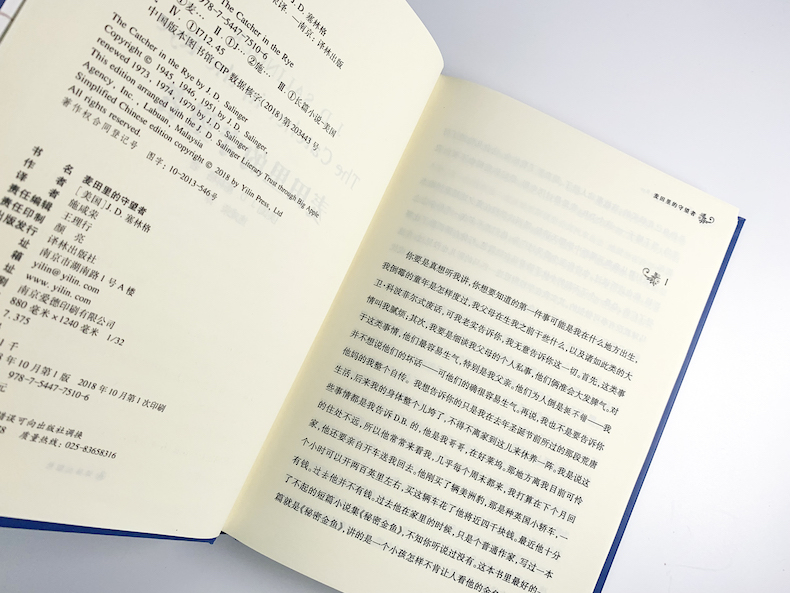 The Catcher in the Rye / J. D. 塞林格
.—南京：译林出版
978-7-5447-7510-6
①麦… Ⅱ. ①J… ②施… Ⅲ. ①长篇小说-美国
Ⅳ. ①I712.45
中国版本图书馆 CIP 数据核字 (2018) 第 203443 号
The Catcher in the Rye
The Catcher in the Rye by J. D. Salinger
Copyright © 1945, 1946, 1951 by J. D. Salinger,
renewed 1973, 1974, 1979 by J. D. Salinger
This edition arranged with the J. D. Salinger Literary Trust through Big Apple
Agency, Inc., Labuan, Malaysia
Simplified Chinese edition copyright © 2018 by Yilin Press, Ltd
All rights reserved.
著作权合同登记号 图字：10-2013-546号
书 名 麦田里的守望者
作 者 [美国] J. D. 塞林格
译 者 施咸荣
责任编辑 王理行
责任印制 颜 亮
出版发行 译林出版社
南京市湖南路 1 号 A 楼
箱 yilin@yilin.com
www. yilin. com
南京爱德印刷有限公司
880 毫米 ×1240 毫米 1/32
7. 375
千
10 月第 1 版 2018 年 10 月第 1 次印刷
978-7-5447-7510-6
元
错误可向出版社调换
质量热线：025-83658316
麦田里的守望者
1
你要是真想听我讲，你想要知道的第一件事可能是我在什么地方出生，
我倒霉的童年是怎样度过，我父母在生我之前干些什么，以及诸如此类的大
卫·科波菲尔式废话，可我老实告诉你，我无意告诉你这一切。首先，这类事
情叫我腻烦；其次，我要是细谈我父母的个人私事，他们俩准会大发脾气。对
于这类事情，他们最容易生气，特别是我父亲。他们为人倒是挺不错——我
并不想说他们的坏话——可他们的确很容易生气。再说，我也不是要告诉你
他妈的我整个自传。我想告诉你的只是我在去年圣诞节前所过的那段荒唐
生活，后来我的身体整个儿垮了，不得不离家到这儿来休养一阵。我是说这
些事情都是我告诉 D.B. 的，他是我哥哥，在好莱坞。那地方离我目前可怜
的住处不远，所以他常常来看我，几乎每个周末都来，我打算在下个月回
家，他还要亲自开车送我回去。他刚买了辆美洲豹，那是种英国小轿车，一
个小时可以开两百英里左右，买这辆车花了他将近四千块钱。最近他十分
有钱。过去他并不有钱。过去他在家里的时候，只是个普通作家，写过一本
了不起的短篇小说集《秘密金鱼》，不知你听说过没有。这本书里最好的一
篇就是《秘密金鱼》，讲的是一个小孩怎样不肯让人看他的金鱼